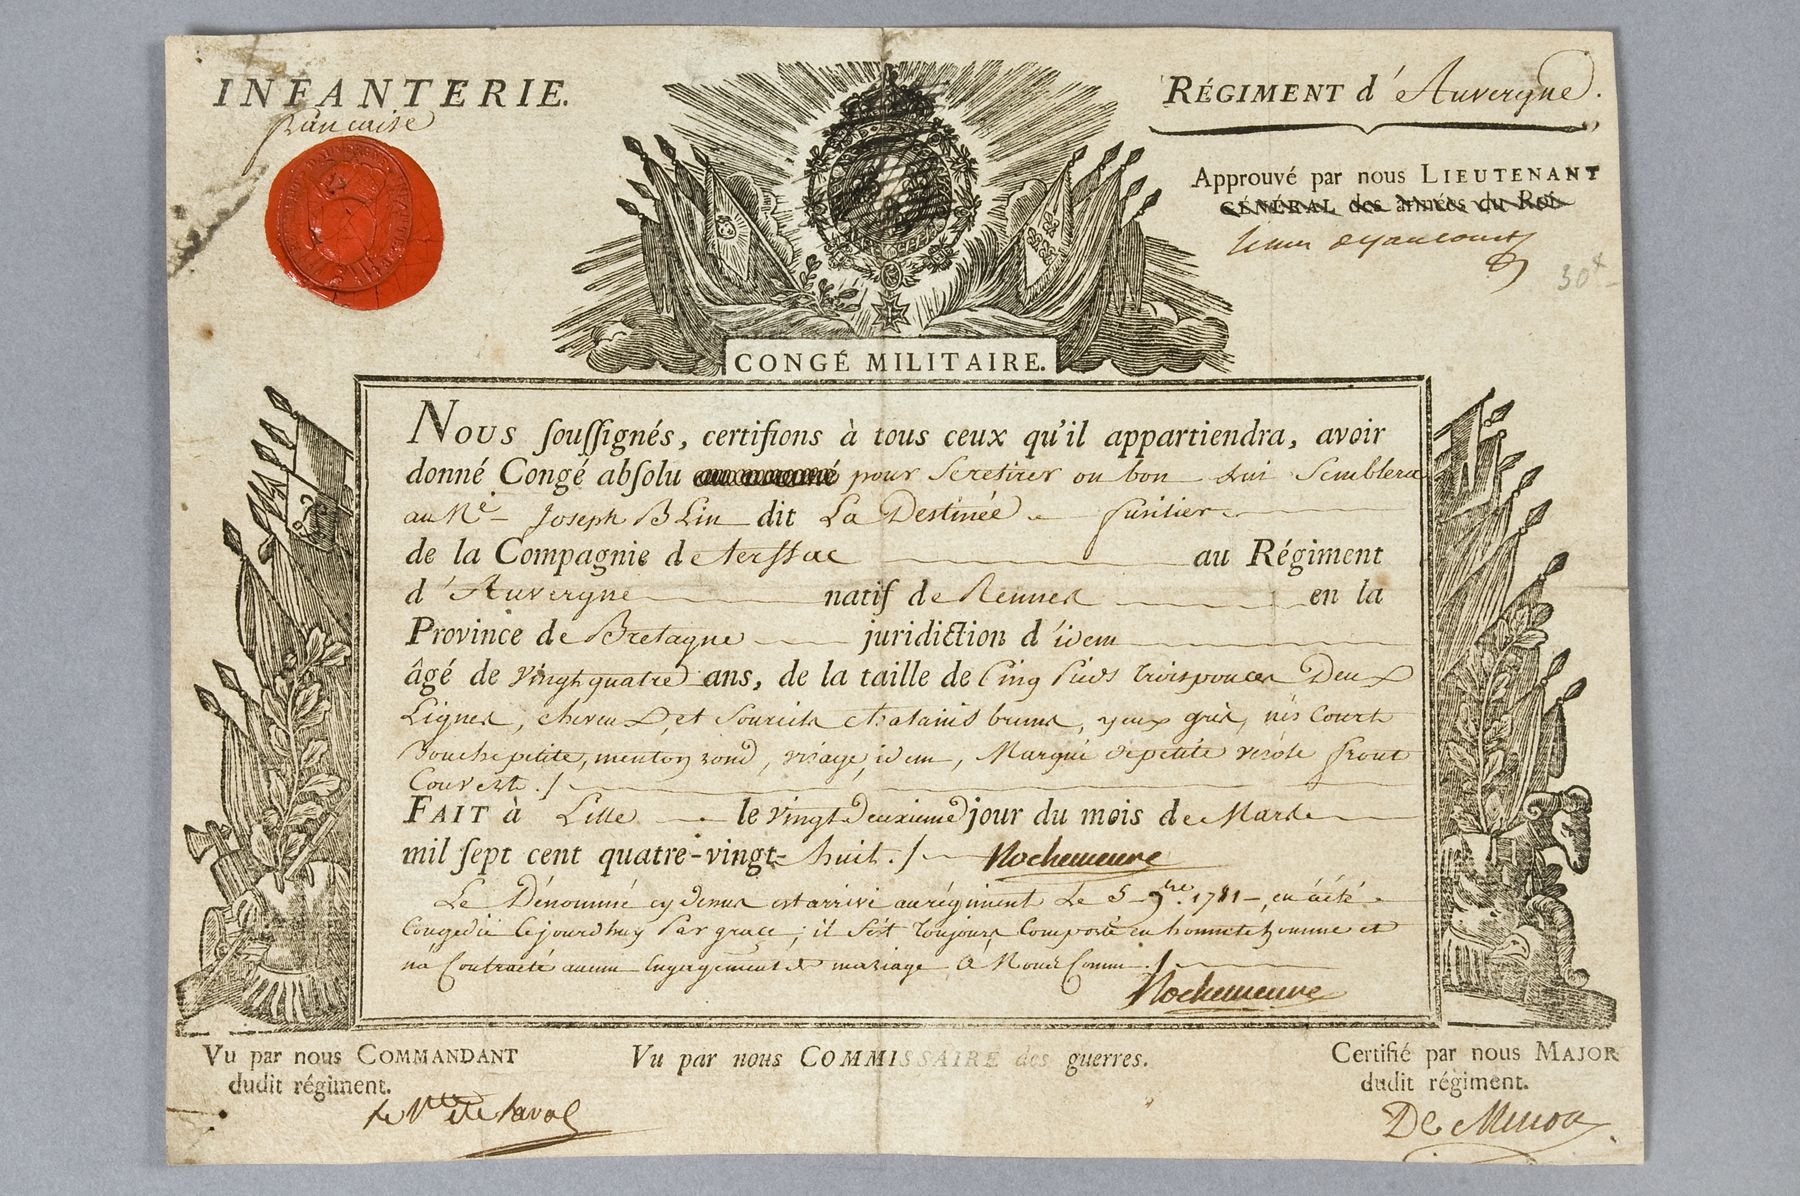 INFANTERIE.
francaise
RÉGIMENT d'Auvergne.
Approuvé par nous LIEUTENANT
GÉNÉRAL des armées du Roi
30
CONGÉ MILITAIRE.
NOUS soussignés, certifions à tous ceux qu'il appartiendra, avoir
donné Congé absolu pour se retirer ou bon lui Semblera
au Né Joseph BLin dit La Destinée fusilier
de la Compagnie de terssac au Régiment
d'Auvergne natif de Rennes en la
Province de Bretagne juridiction d'idem
âgé de vingt quatre ans, de la taille de Cinq pieds trois pouces Deux
Lignes, cheveux, et Sourcils chatains bruns, yeux gris, nés Court
Bouche petite, menton rond, visage, idem, Marqué de petite vérole front
Couvert./
FAIT à Lille le vingt Deuxieme jour du mois de Mars
mil sept cent quatre-vingt-huit./ Rochemeure
Le Dénommé cy Dessus est arrivé au régiment Le 5 9bre. 1781, en a été
Congedié Cejourdhuy Par grace; il s'est toujours Comporté en honnete homme et
na Contracté aucun Engagement de mariage a Nous Connu./
Rochemeure
Vu par nous COMMANDANT
dudit régiment.
le Vte de Laval
Vu par nous COMMISSAIRE des guerres.
Certifié par nous MAJOR
dudit régiment.
De Menou